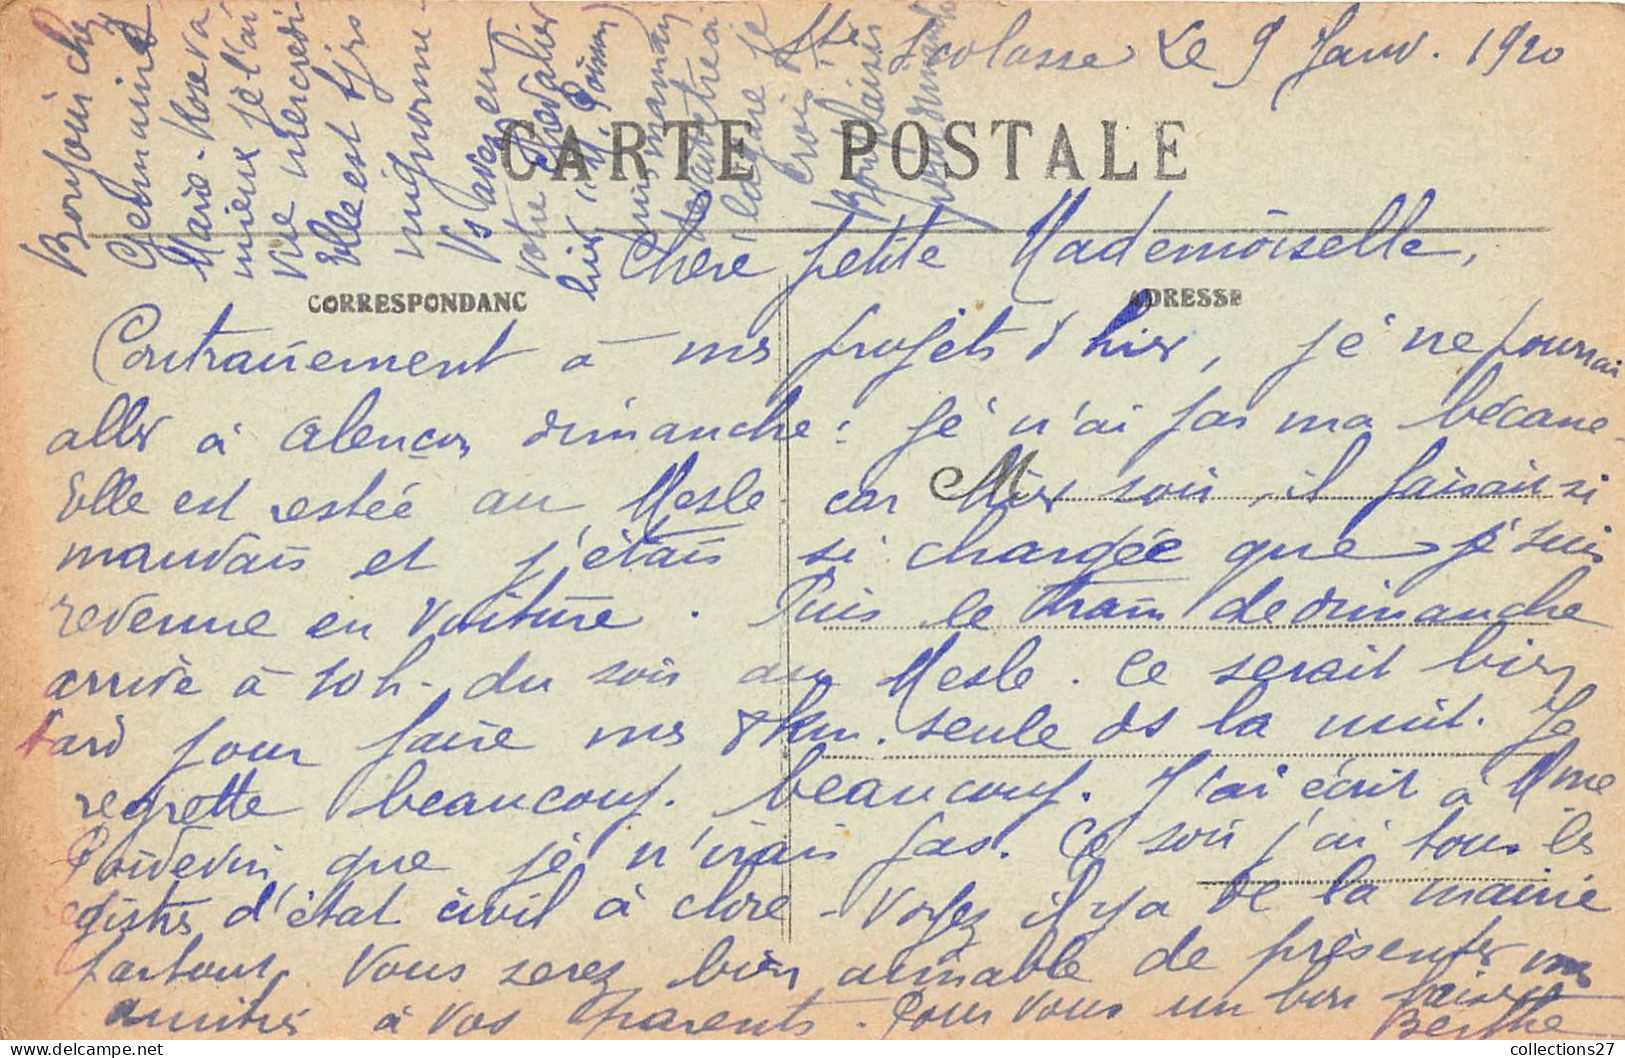 Ste Scolasse Le 9 Janv. 1920
CARTE POSTALE
Chère petite Mademoiselle,
CORRESPONDANC
ADRESSE
Contrairement à ms projets d'hier, je ne pourrai
aller à Alençon dimanche : je n'ai pas ma bécane -
Elle est restée au Mesle car Hier soir, il faisait si
mauvais et j'étais si chargée que je suis
revenue en voiture. Puis le train de dimanche
arrive à 10 h. du soir au Mesle. Ce serait bien
tard pour faire ms 8 km. seule ds la nuit. Je
regrette beaucoup. beaucoup. J'ai écrit à Mme
Poidevin que je n'irais pas. Ce soir j'ai tous les
registres d'état civil à clore - Voyez il y a de la mairie
partout, Vous serez bien aimable de présenter ms
amitiés à vos parents. Pour vous un bon baiser
Berthe
Bonjour chez
Germaine
Marie-Rose va
mieux je l'ai
vue mercredi
Elle est tjrs
mignonne -
Vs avez eu
votre chevalier
hier
puis maman